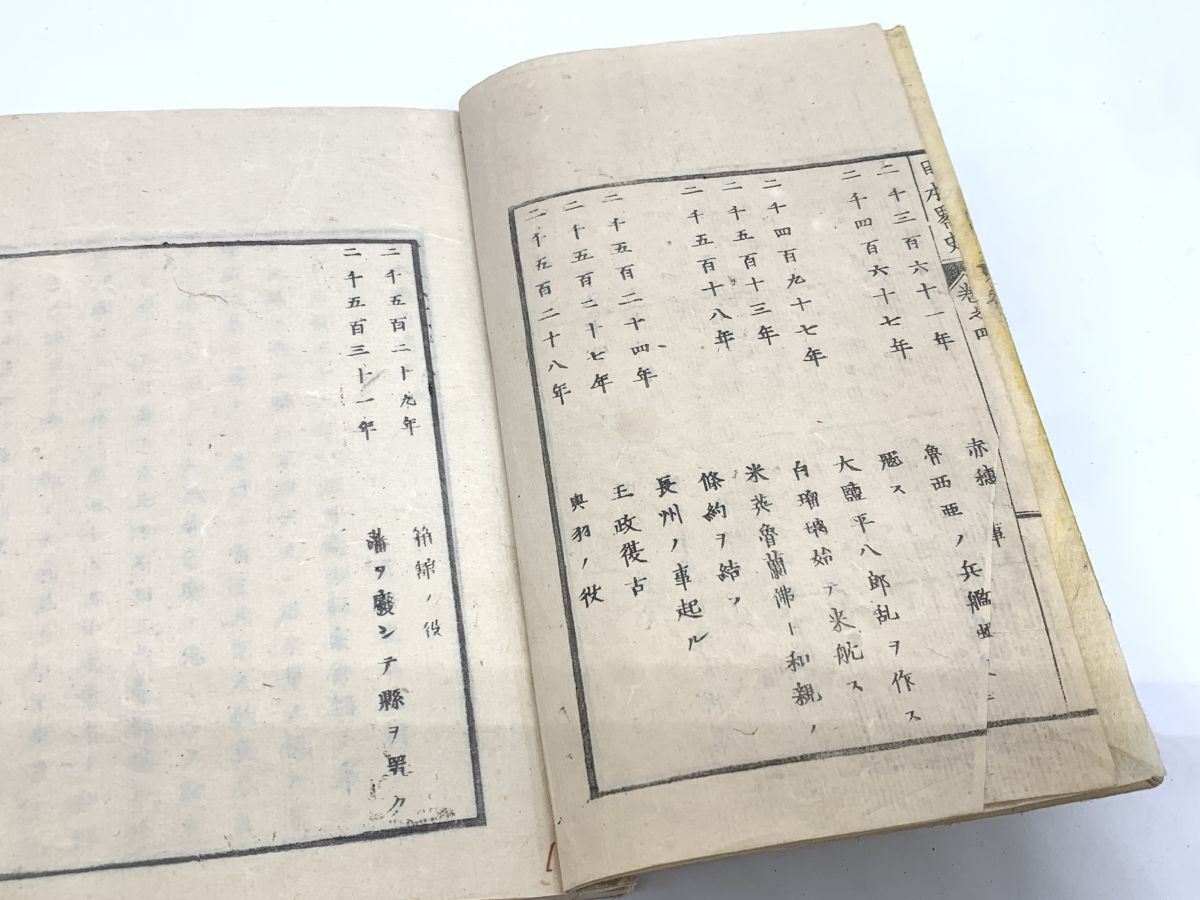 日本畧史 卷之四
二千三百六十一年 赤穗 事
二千四百六十七年 魯西亜ノ兵艦蝦
冦ス
二千四百九十七年 大鹽平八郎乱ヲ作ス
二千五百十三年 白瑠璃始テ来航ス
二千五百十八年 米英魯蘭佛ト和親ノ
條約ヲ結フ
二千五百二十四年 長州ノ事起ル
二千五百二十七年 王政復古
二千五百二十八年 奥羽ノ役
二千五百二十九年 箱館ノ役
二千五百三十一年 藩ヲ廢シテ縣ヲ置ク